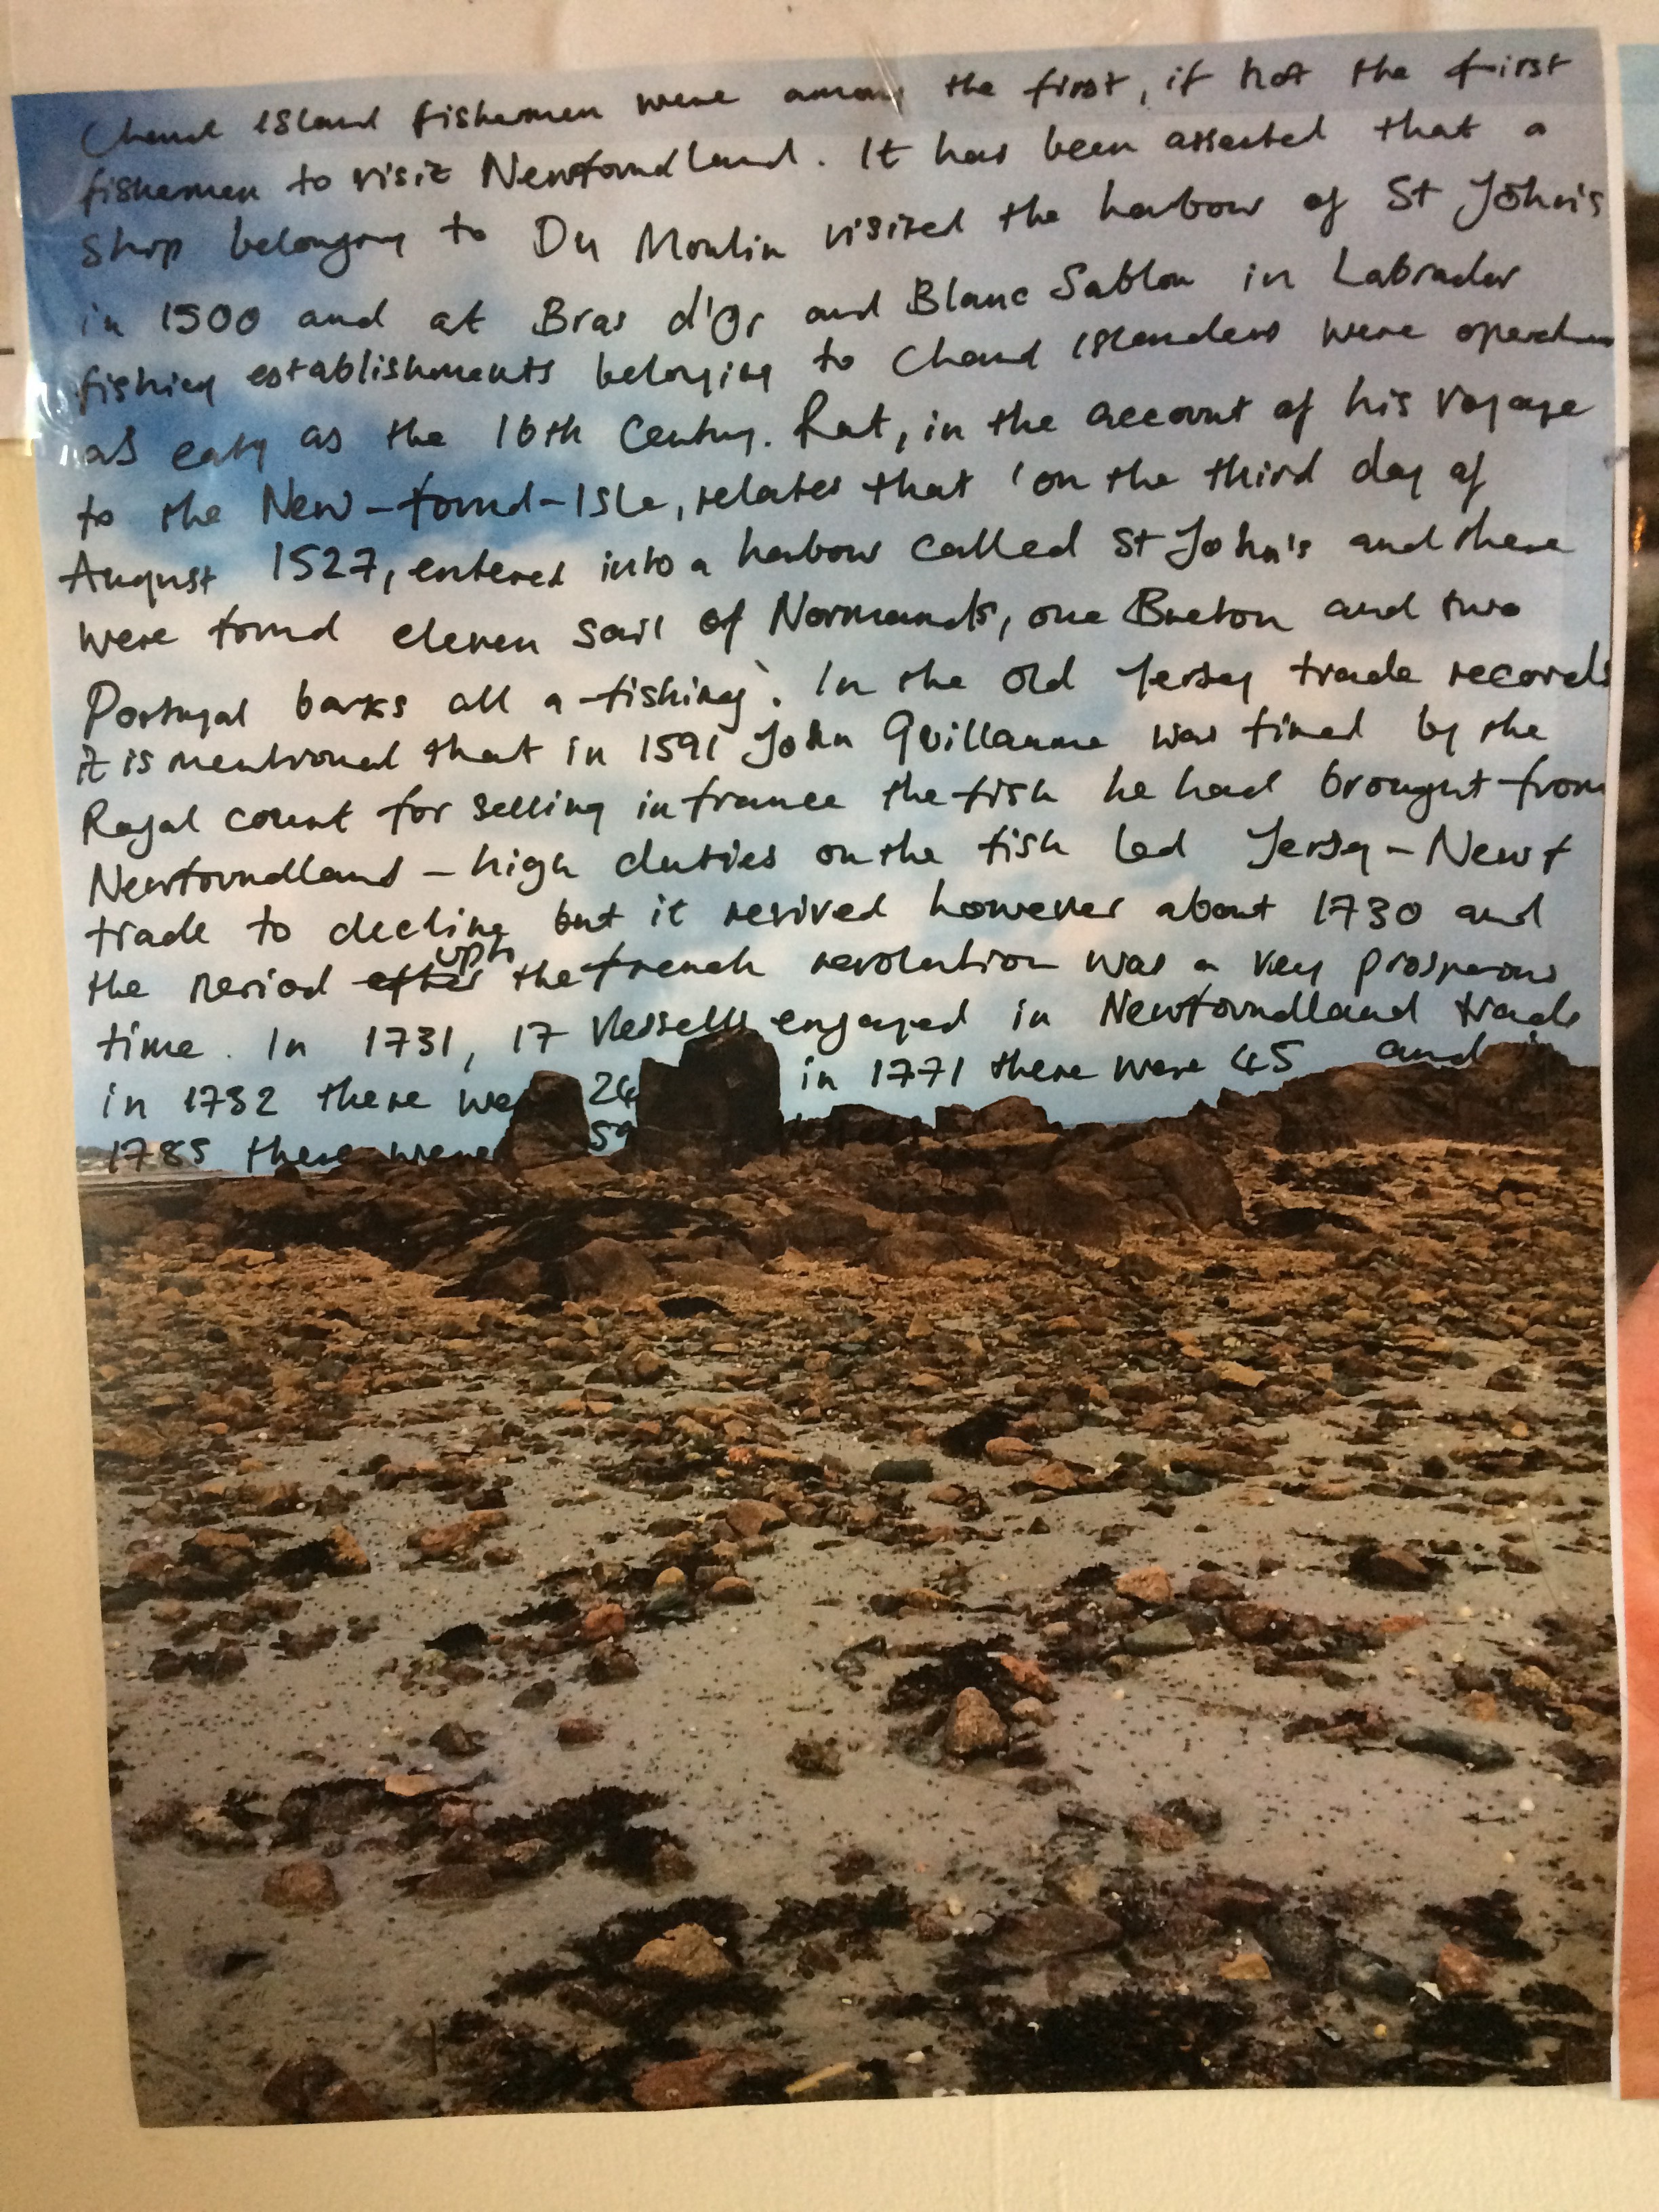 Chanel Island fishermen were among the first, if not the first
fishermen to visit Newfoundland. It has been asserted that a
ship belonging to Du Moulin visited the harbour of St John's
in 1500 and at Bras d'Or and Blanc Sablon in Labrador
fishing establishments belonging to Chanel Islanders were
as early as the 16th Century. Rut, in the account of his voyage
to the New-found-Isle, relates that 'on the third day of
August 1527, entered into a harbour called St John's and there
were found eleven sail of Normands, one Breton and two
Portugal barks all a-fishing'. In the old Jersey trade records
it is mentioned that in 1591 John Guillaume was fined by the
Royal court for selling in france the fish he had brought from
Newfoundland - high duties on the fish led Jersey - Newf
trade to decline but it revived however about 1730 and
the period after upto the french revolution was a very prosperous
time. In 1731, 17 vessells engaged in Newfoundland trade
in 1732 there were 24 in 1771 there were 45 and in
1785 there were 59